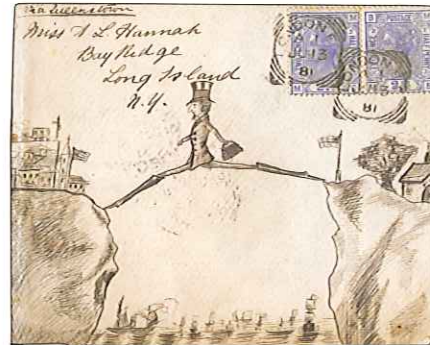 via Queenstown
Miss A L Hannah
Bay Ridge
Long Island
N.Y.
POSTAGE
JU 13
81
81